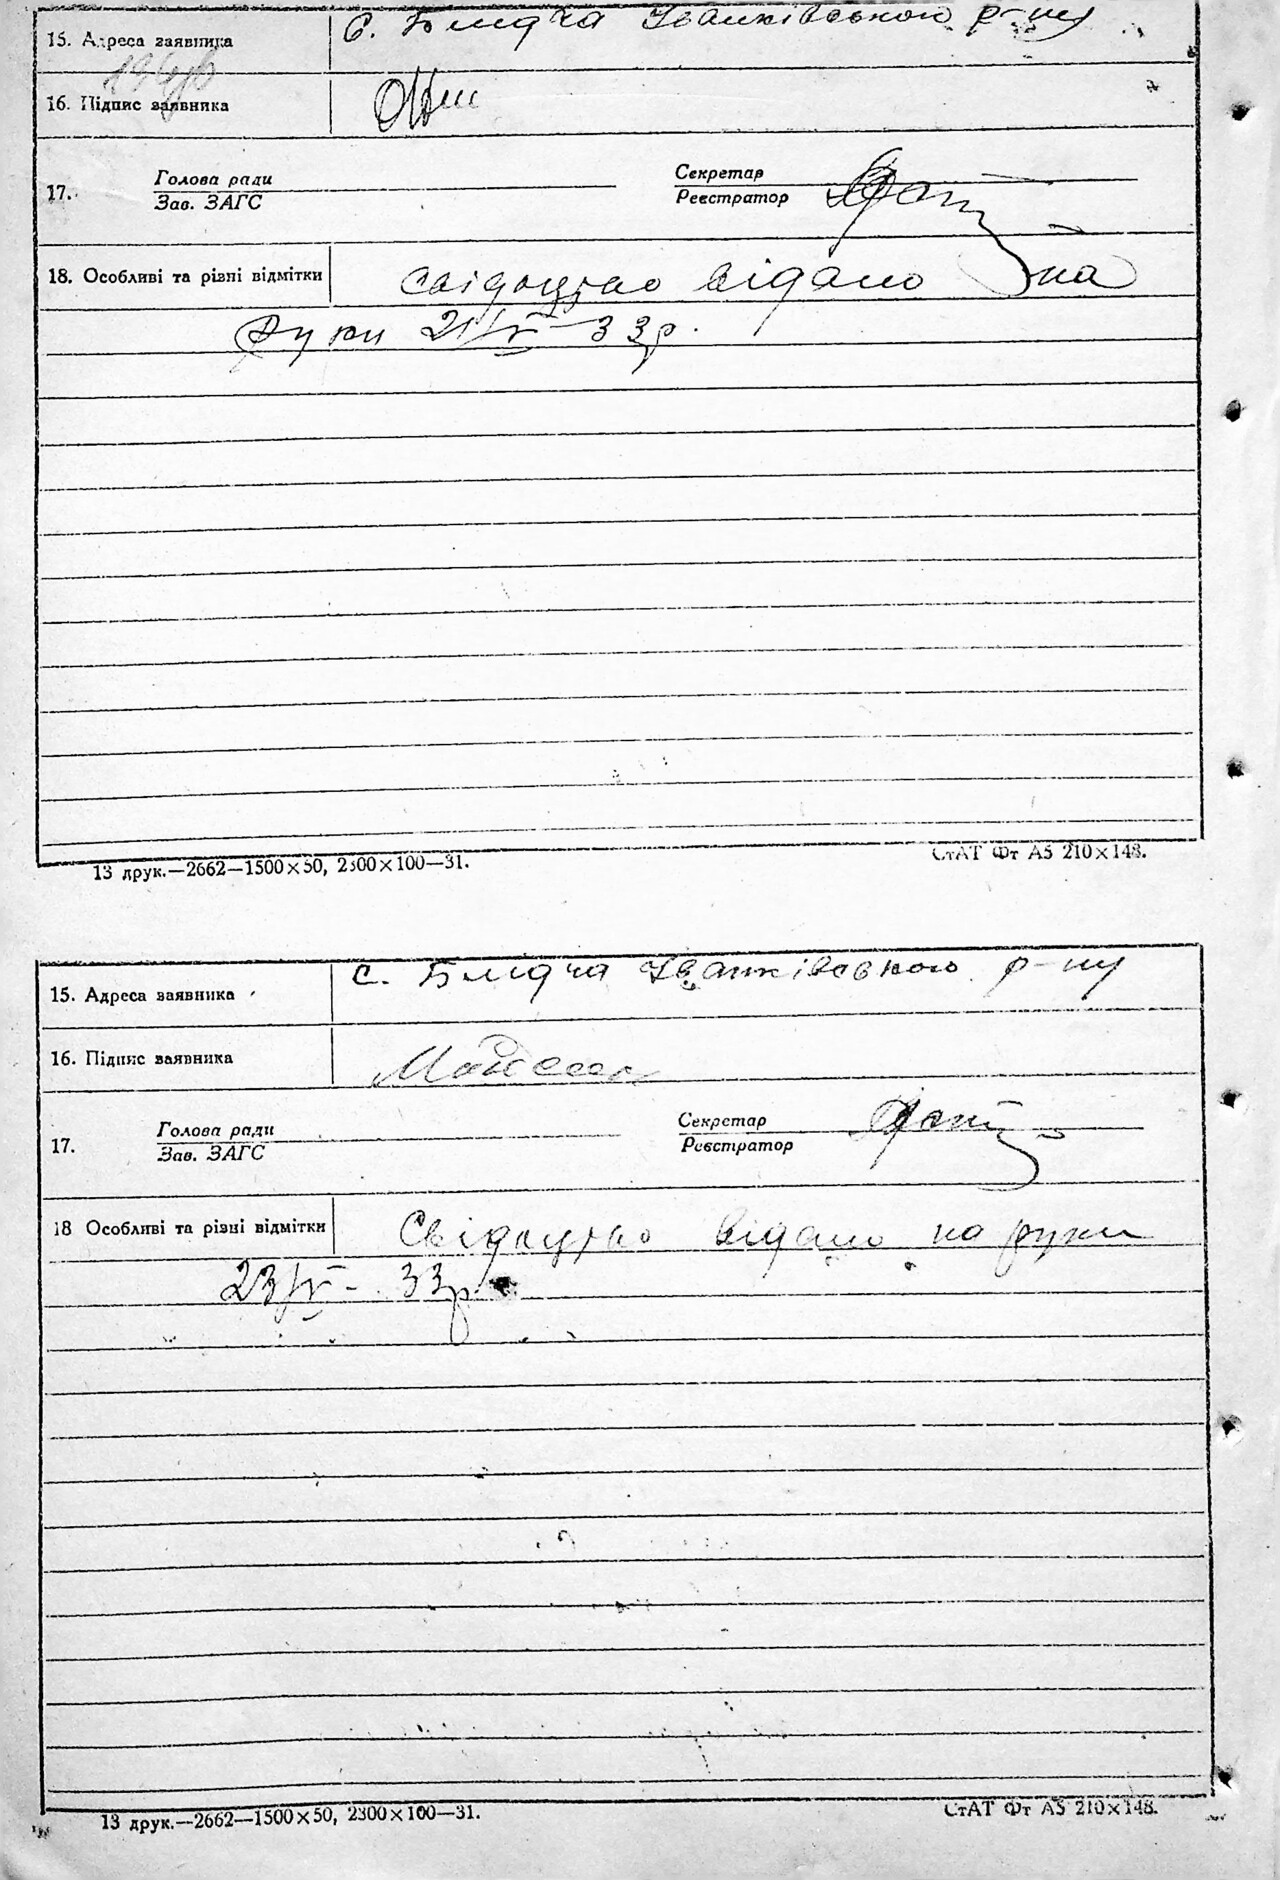 15. Адреса заявника с. Блидча Іванківського р-ну
16. Підпис заявника
17. Голова ради Секретар
Зав. ЗАГС Реєстратор
18. Особливі та різні відмітки свідоцтво відано на
руки 21/V-33р.
13 друк.—2662—1500×50, 2300×100—31. СтАТ Фт А5 210×148.
15. Адреса заявника с. Блидча Іванківського р-ну
16. Підпис заявника
17. Голова ради Секретар
Зав. ЗАГС Реєстратор
18 Особливі та різні відмітки Свідоцтво відано на руки
23/V- 33р.
13 друк.—2662—1500×50, 2300×100—31. СтАТ Фт А5 210×148.